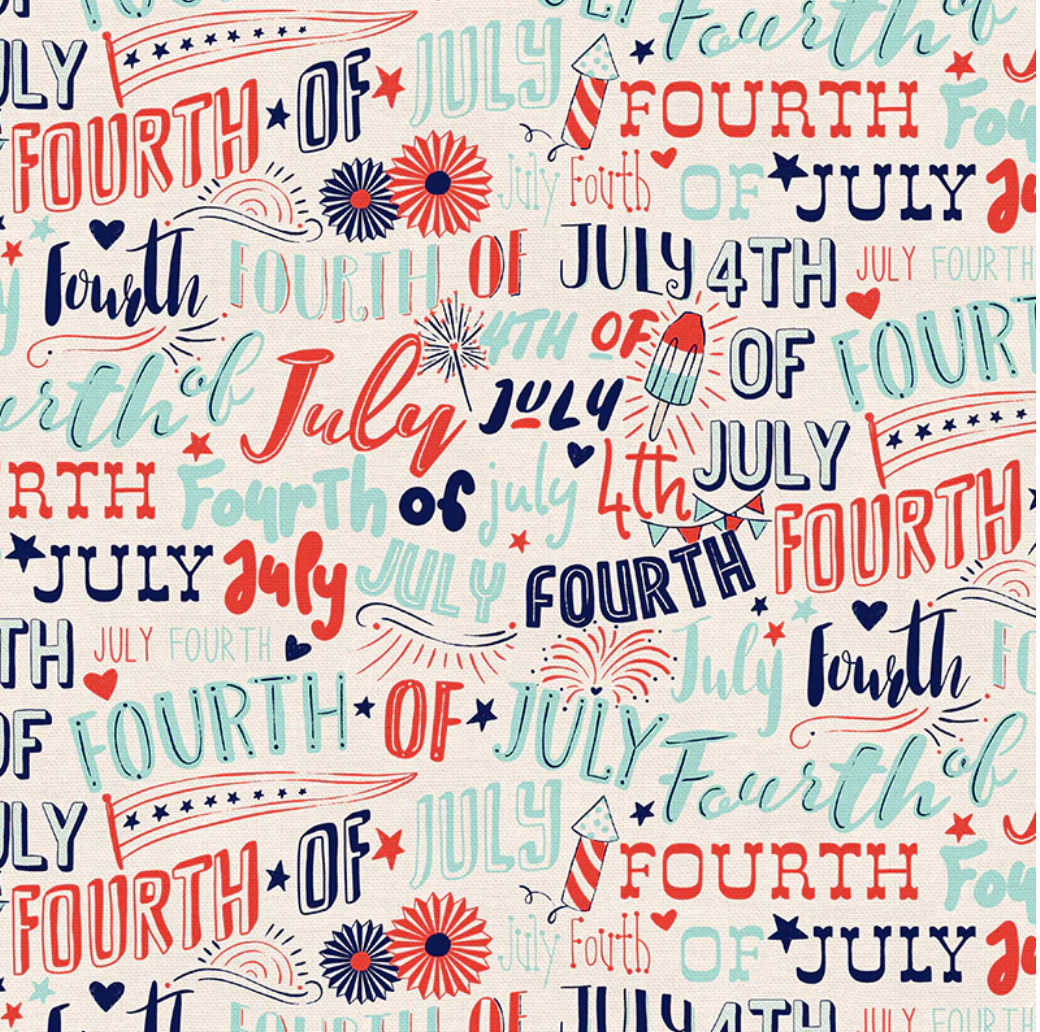 Fourth of
ULY
FOURTH OF JULY
FOURTH Fou
July Fouth OF JULY Ju
Fourth FOURTH OF JULY 4TH JULY FOURTH
4TH OF JULY
OF FOURT
urth of July
JULY
RTH Fourth of july 4th
FOURTH
JULY July JULY FOURTH
TH JULY FOURTH July Fourth FO
OF FOURTH OF JULY Fourth of
ULY
FOURTH OF JULY
FOURTH Fou
July Fouth OF JULY Ju
4TH JULY FOURTH